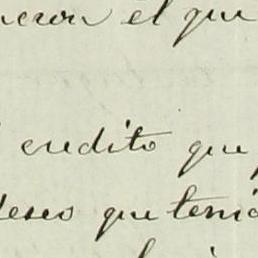 ieron el que
credito que
deseo que tenia